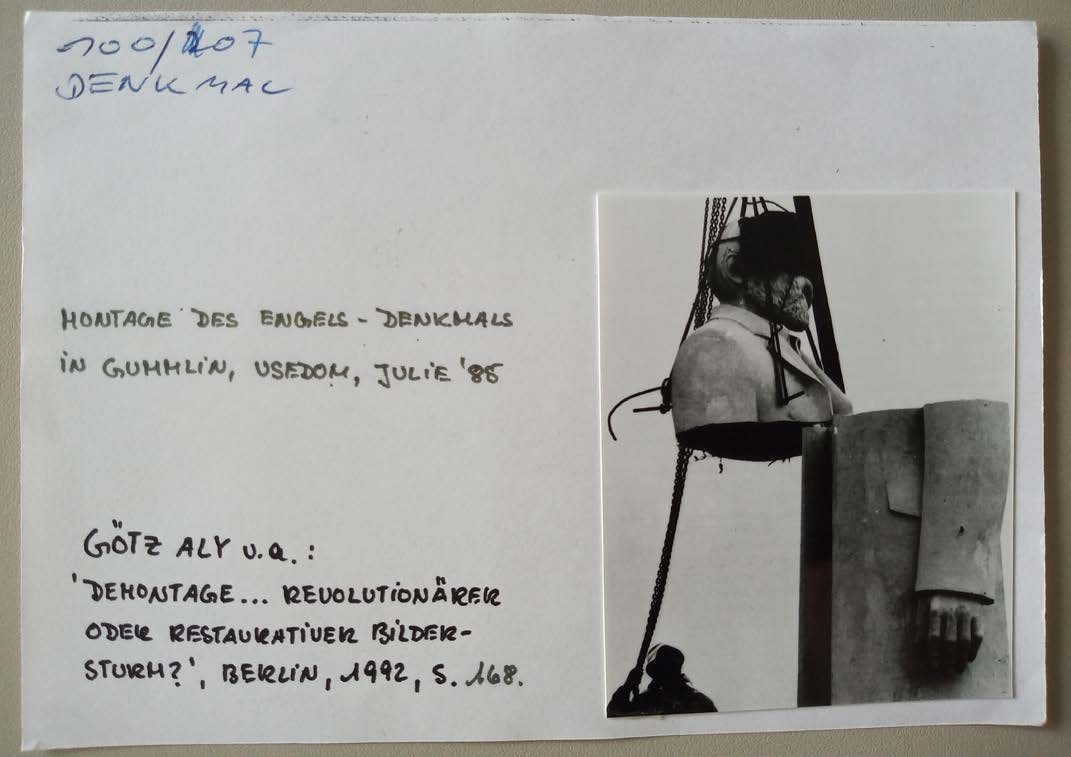 100/107
DENKMAL
MONTAGE DES ENGELS-DENKMALS
IN GUMMLIN, USEDOM, JULIE '88
GÖTZ ALY u.a.:
'DEMONTAGE... REVOLUTIONÄRER
ODER RESTAURATIVER BILDER-
STURM?', BERLIN, 1992, S. 168.